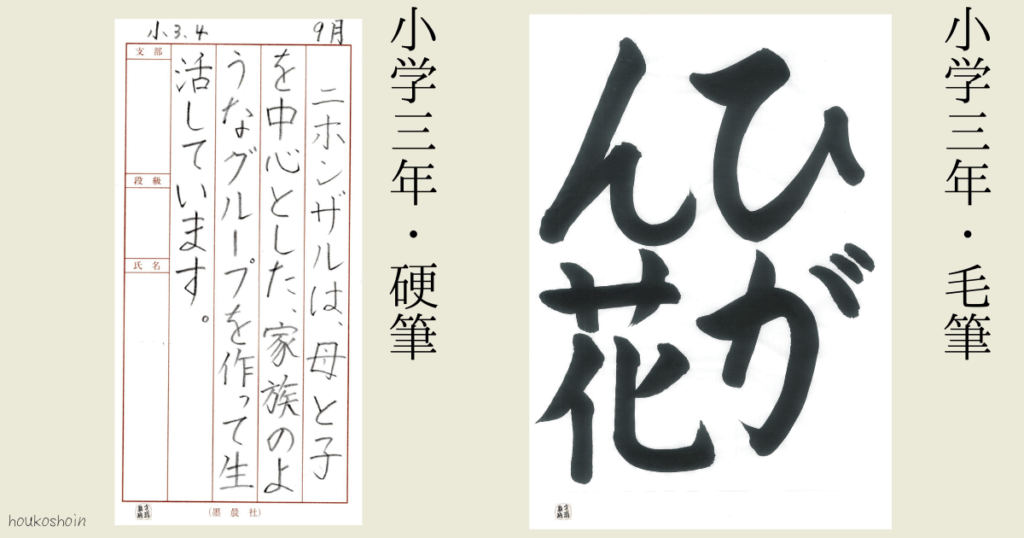 小学三年・毛筆
ひが
ん花
小学三年・硬筆
小3.4
9月
ニホンザルは、母と子
を中心とした、家族のよ
うなグループを作って生
活しています。
支部
段級
氏名
(墨晨社)
houkoshoin